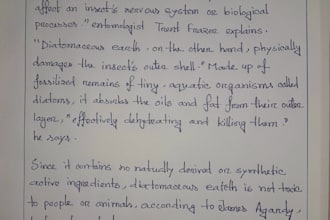 affect an insect's nervous system or biological
processes." entomologist Trent Frazer explains.
"Diatomaceous earth, on the other hand, physically
damages the insect's outer shell." Made up of
fossilised remains of tiny, aquatic organisms called
diatoms, it absorbs the oils and fat from their outer
layer, "effectively dehydrating and killing them."
he says.
Since it contains no naturally derived or synthetic
active ingredients, diatomaceous earth is not toxic
to people or animals, according to James Agardy,